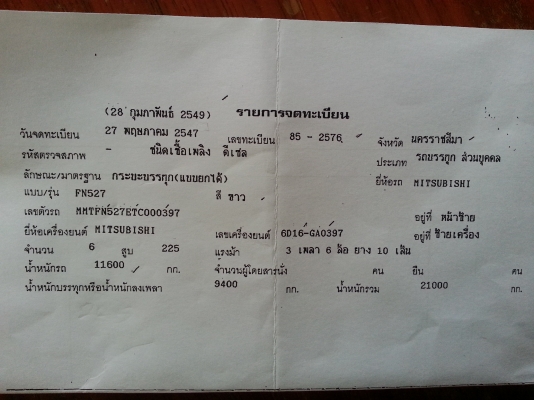 (28 กุมภาพันธ์ 2549) รายการจดทะเบียน
วันจดทะเบียน 27 พฤษภาคม 2547 เลขทะเบียน 85 - 2576 จังหวัด นครราชสีมา
รหัสตรวจสภาพ - ชนิดเชื้อเพลิง ดีเซล ประเภท รถบรรทุก ส่วนบุคคล
ลักษณะ/มาตรฐาน กระบะบรรทุก(แบบยกได้) ยี่ห้อรถ MITSUBISHI
แบบ/รุ่น FN527 สี ขาว
เลขตัวรถ MMTFN527ETC000397 อยู่ที่ หน้าซ้าย
ยี่ห้อเครื่องยนต์ MITSUBISHI เลขเครื่องยนต์ 6D16-GA0397 อยู่ที่ ซ้ายเครื่อง
จำนวน 6 สูบ 225 แรงม้า 3 เพลา 6 ล้อ ยาง 10 เส้น
น้ำหนักรถ 11600 กก. จำนวนผู้โดยสารนั่ง คน ยืน คน
น้ำหนักบรรทุกหรือน้ำหนักลงเพลา 9400 กก. น้ำหนักรวม 21000 กก.